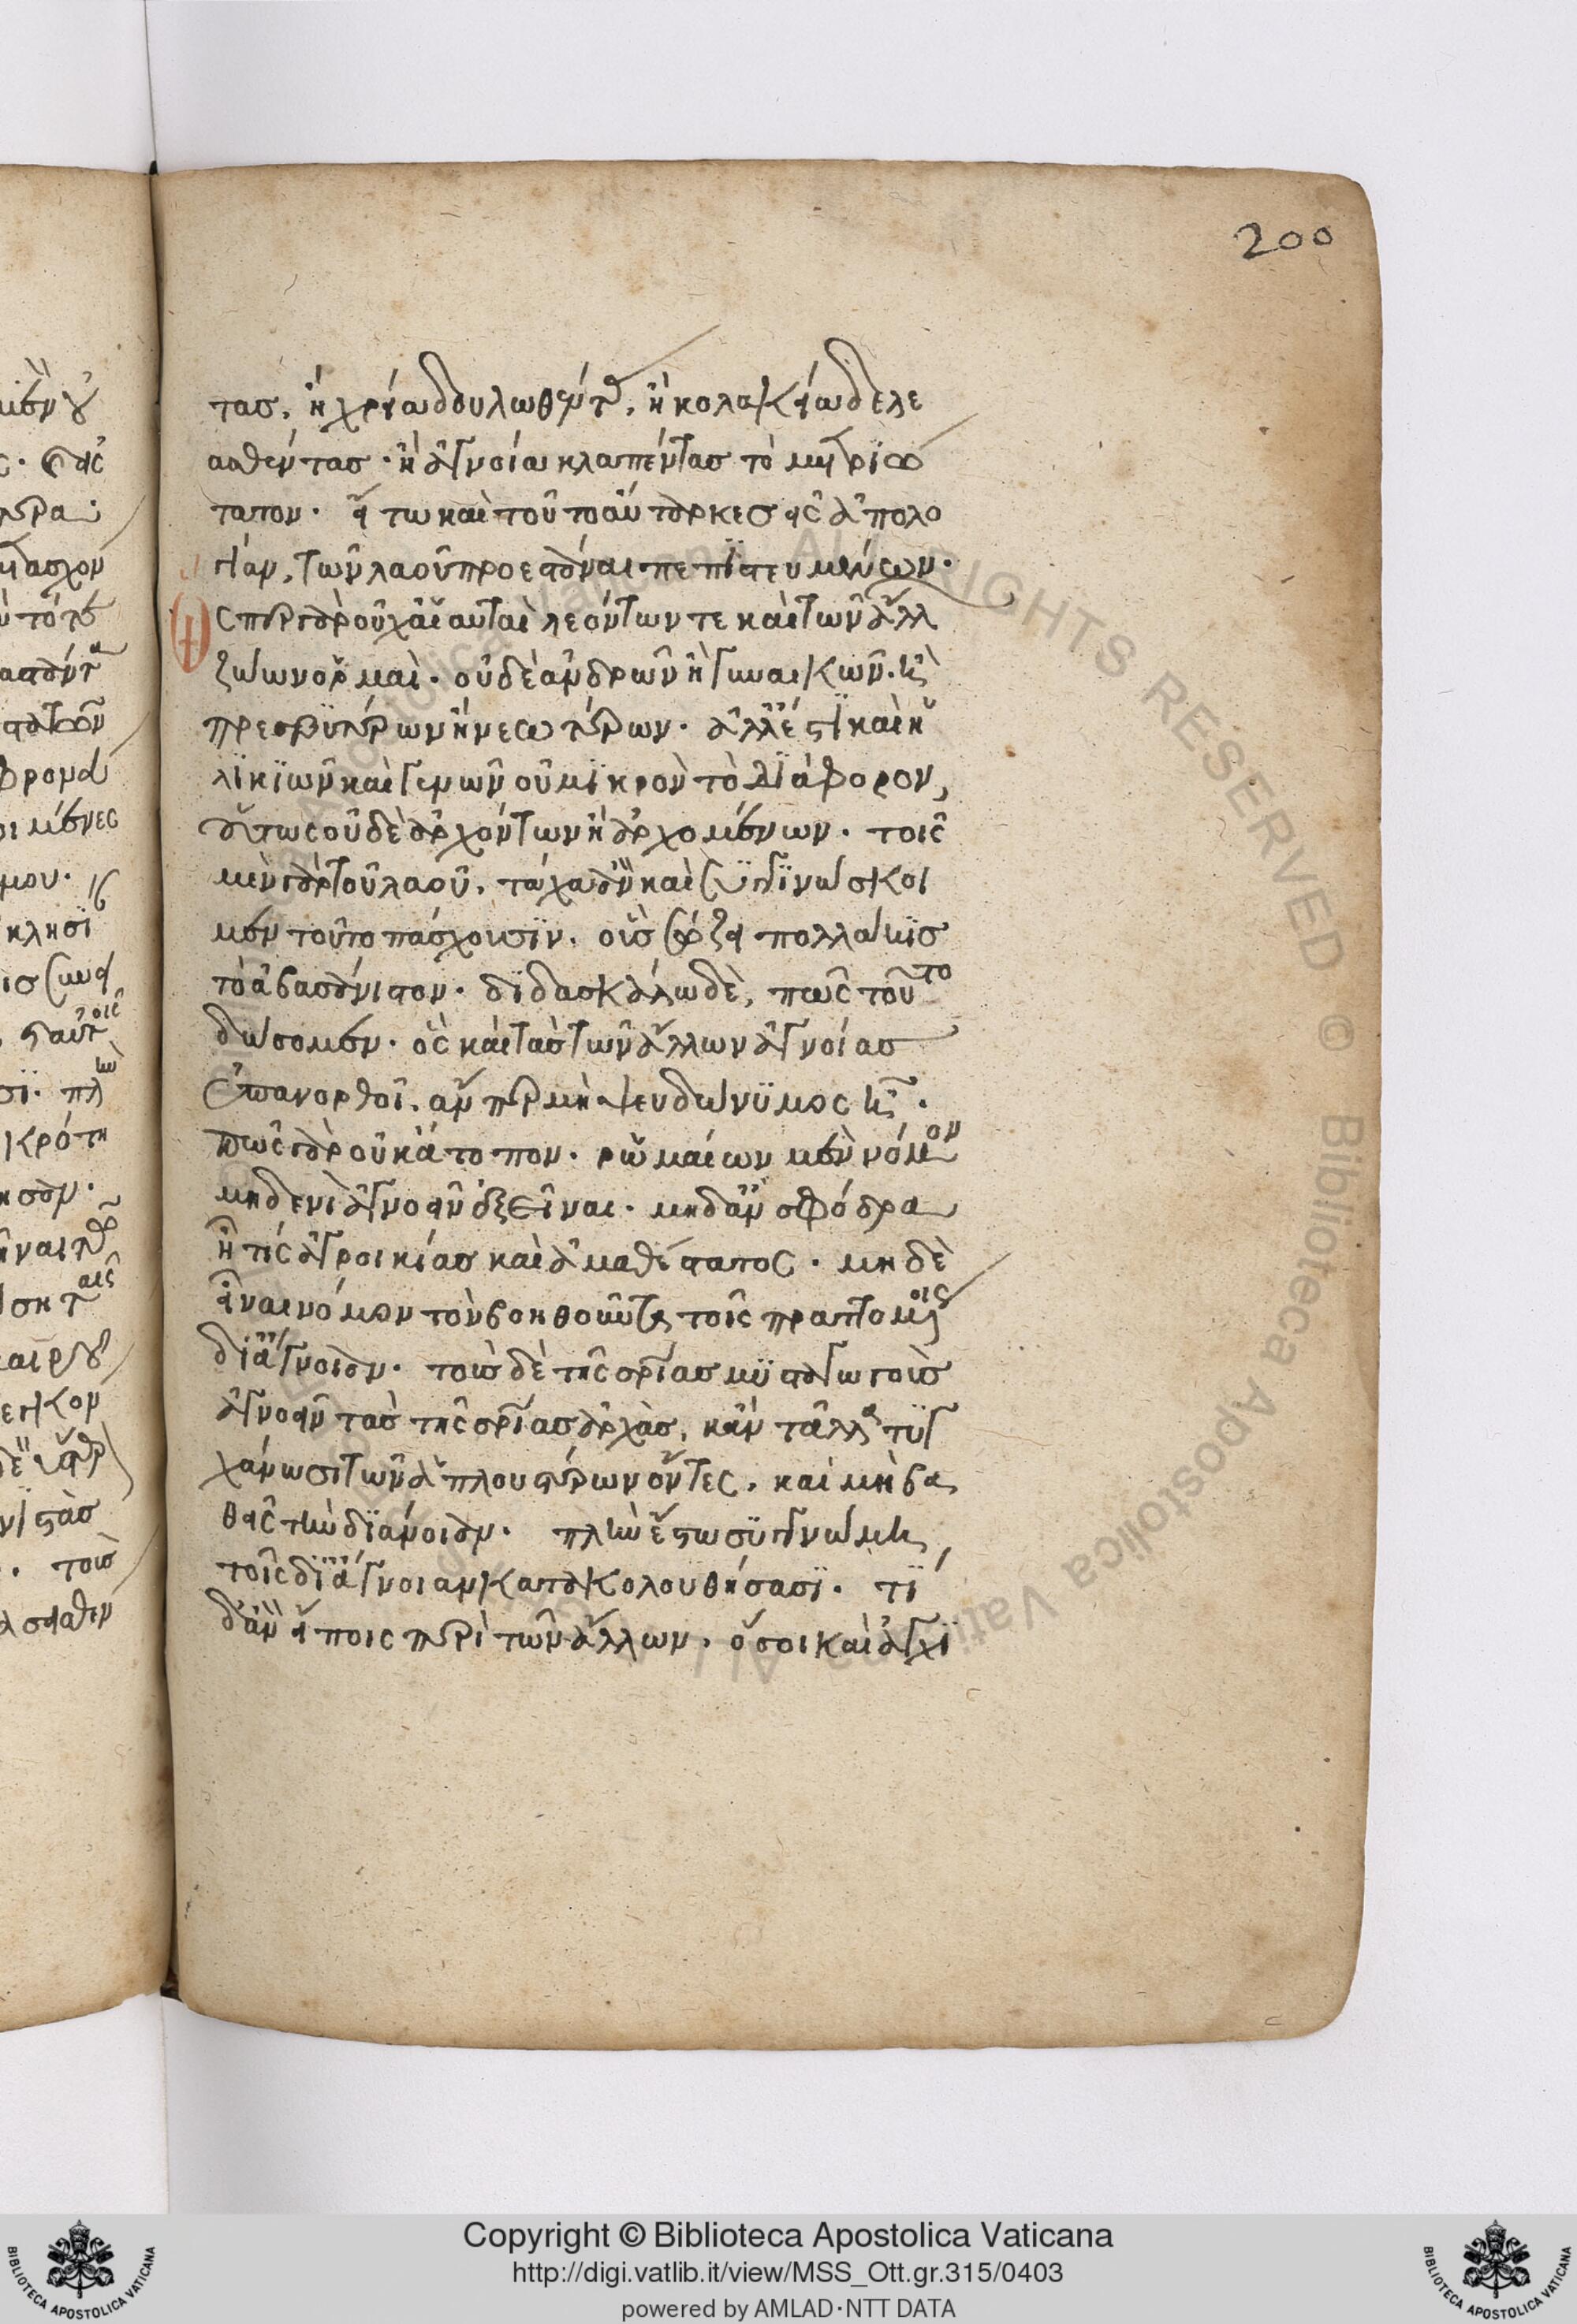 200
τας, ἢ χρεία δουλωθέντας, ἢ κολακεία δελε
ασθέντας· ἢ ἀγνοία κλαπέντας τὸ μετριώ
τατον· ἔστω καὶ τοῦτο αὔταρκες εἰς ἀπολο
γίαν, τῶν λαοῦ προεστάναι πεπιστευμένων·
ὥσπερ γὰρ οὐχ αἱ αὐταὶ λεόντων τε καὶ τῶν ἄλλων
ζώων ὁρμαὶ· οὐδὲ ἀνδρῶν ἢ γυναικῶν· καὶ
πρεσβυτέρων ἢ νεωτέρων· ἀλλ' ἔστι καὶ ἡ
λικιῶν καὶ γενῶν οὐ μικρὸν τὸ διάφορον,
οὕτως οὐδὲ ἀρχόντων ἢ ἀρχομένων· τοῖς
μὲν γὰρ τοῦ λαοῦ, τάχα ἂν καὶ συγγινώσκοι
μεν τοῦτο πάσχουσιν, οὓς σώζει πολλάκις
τὸ ἀβασάνιστον· διδασκάλω δὲ, πῶς τοῦτο
δώσομεν· ὃς καὶ τὰς τῶν ἄλλων ἀγνοίας
ἐπανορθοῖ, ἄνπερ μὴ ψευδώνυμος ἦ·
πῶς γὰρ οὐκ ἄτοπον· ῥωμαίων μὲν νόμον
μηδενὶ ἀγνοεῖν ἐξεῖναι· μηδ' ἂν σφόδρα
ἦ τίς ἀγροικίας καὶ ἀμαθέστατος· μηδὲ
εἶναι νόμον τὸν βοηθοῦντα τοῖς πραττομένοις
δι' ἄγνοιαν· τοὺς δὲ τῆς σωτηρίας μυσταγωγοὺς
ἀγνοεῖν τὰς τῆς σωτηρίας ἀρχὰς, κἂν τἄλλα τυγ
χάνωσι τῶν ἁπλουστέρων ὄντες, καὶ μὴ βα
θεῖς τὴν διάνοιαν· πλὴν ἔστω συγγνώμη,
τοῖς δι' ἄγνοιαν κατακολουθήσασι· τί
δ' ἂν εἴποις περὶ τῶν ἄλλων· ὅσοι καὶ ἀγχι
Copyright © Biblioteca Apostolica Vaticana
http://digi.vatlib.it/view/MSS_Ott.gr.315/0403
powered by AMLAD·NTT DATA